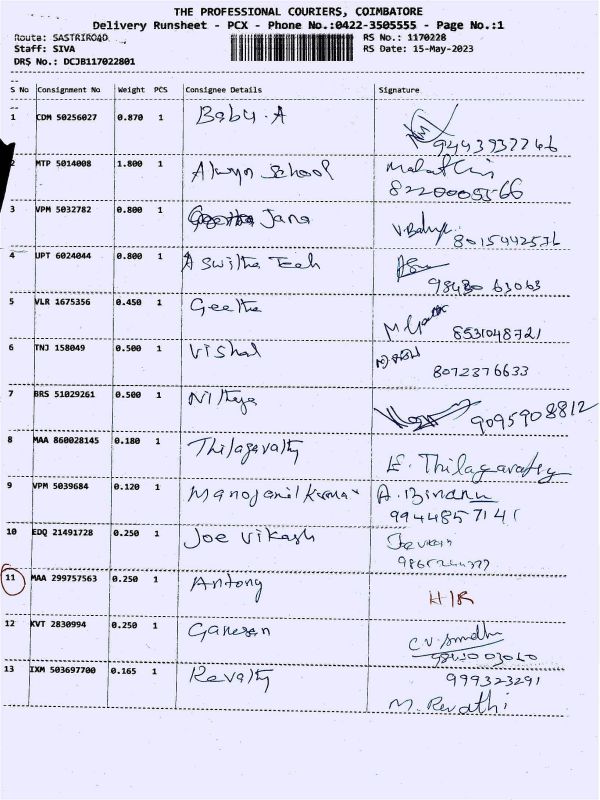 THE PROFESSIONAL COURIERS, COIMBATORE
Delivery Runsheet - PCX - Phone No.:0422-3505555 - Page No.:1
Route: SASTRIROAD RS No.: 1170228
Staff: SIVA RS Date: 15-May-2023
DRS No.: DCJB117022801
S No Consignment No Weight PCS Consignee Details Signature
1 CDM 50256027 0.870 1 Baby. A
9443937746
2 MTP 5014008 1.800 1 School Malathi
8220005566
3 VPM 5032782 0.800 1 Jana
8015442576
4 UPT 6024044 0.800 1 Aswitha Tech
98480 63063
5 VLR 1675356 0.450 1 Geetha
8531048721
6 TNJ 158049 0.500 1 Vishal
8072376633
7 BRS 51029261 0.500 1 Nithya
9095908812
8 MAA 860028145 0.180 1 Thilagavathy
E. Thilagavathy
9 VPM 5039684 0.120 1 Manojanil Kumar A. Bindhu
9944857141
10 EDQ 21491728 0.250 1 Joe Vikash Joe vikash
11 MAA 299757563 0.250 1 Antony H/R
12 KVT 2830994 0.250 1 Ganesan C.V. Smudhu
13 IXM 503697700 0.165 1 Revathy 999323291
M. Revathi